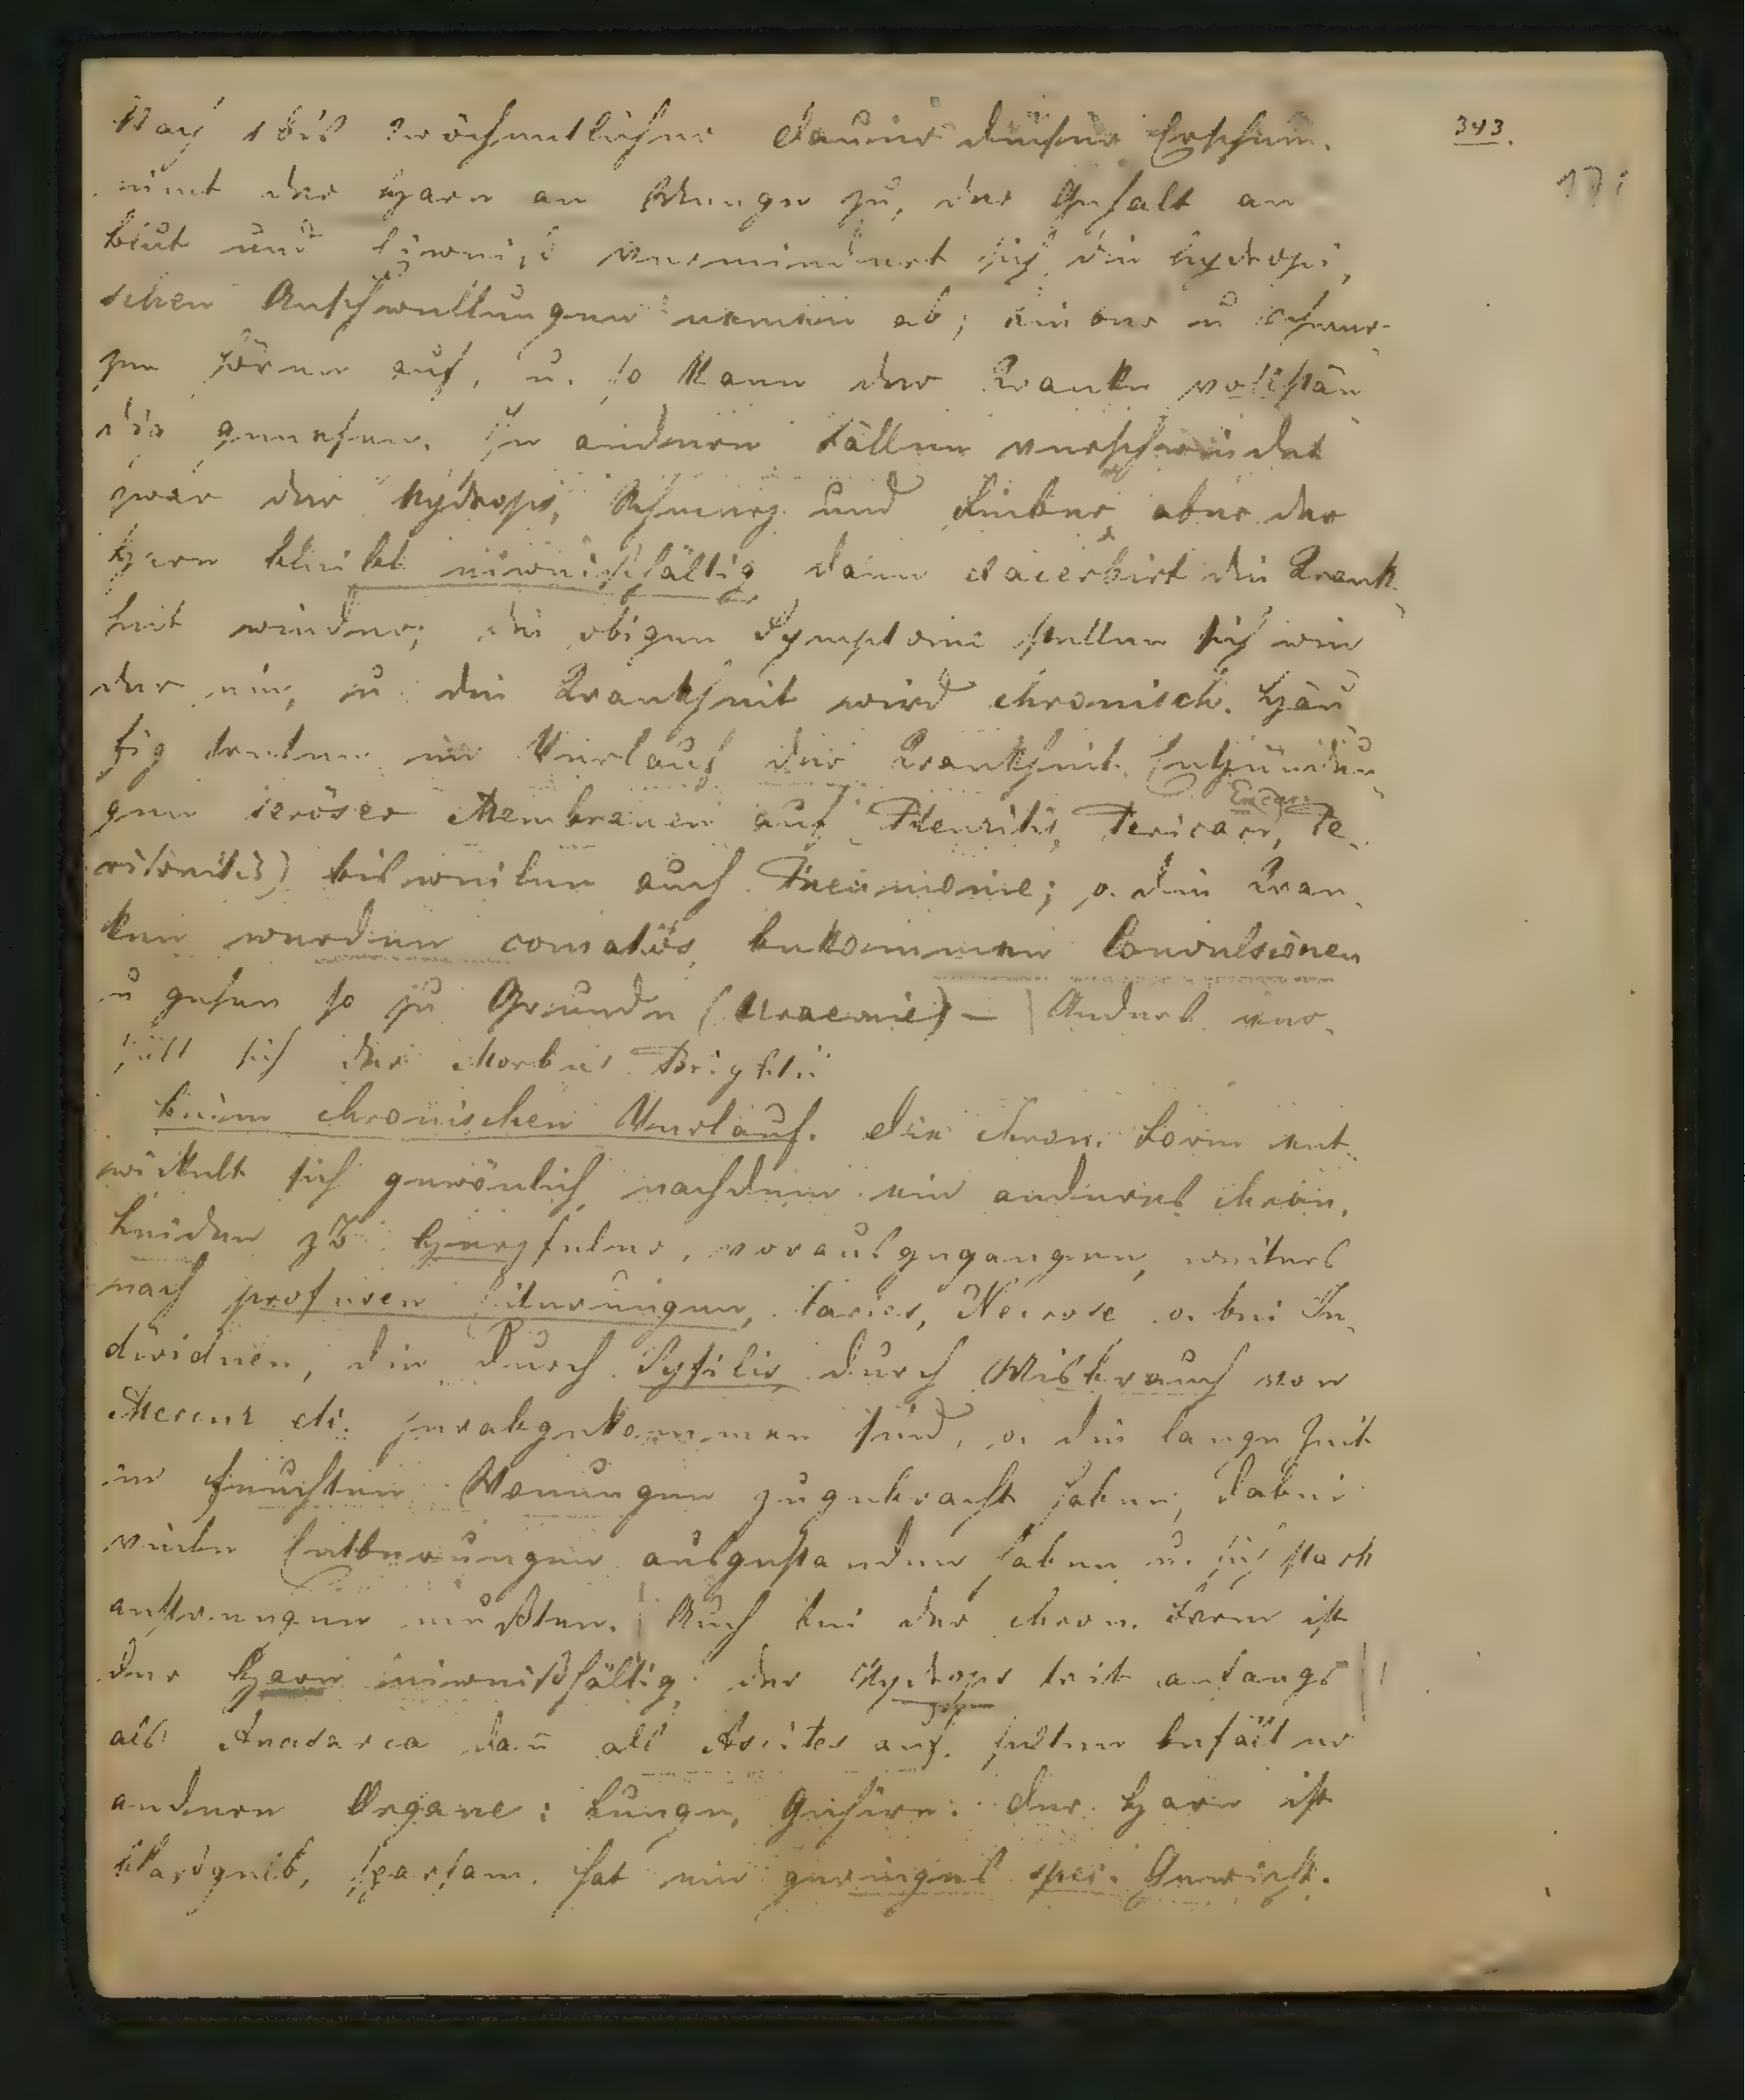 343.
171
Nach 1 bis 2wöchentlicher Dauer dieser Erschein.
nimt der Harn an Menge zu, der Gehalt an
Blut und Eiweiß vermindert sich, die hydropi,
schen Anschwellungen nemen ab; Fieber u Schmer-
zen hören auf, u. so kann der Kranke vollstän
dig genesen. In anderen Fällen verschwindet
zwar der Hydrops, Schmerz und Fieber, aber der
Harn bleibt eiweißhältig, dann exacerbirt die Krank,
heit wieder, die obigen Symptome stellen sich wie
der ein, u die Krankheit wird chronisch. Häu
fig treten im Verlauf der Krankheit Entzündun,
gen seröser Membranen auf Pleuritis, Pericar, Endocar, Pe,
ritonitis) bisweilen auch Pneumonie; o. die Kran,
ken werden comatös, bekommen Convulsionen
u gehen so zu Grunde (Uraemie) – | Anders ver,
hält sich der Morbus Brightii
beim chronischen Verlauf. Die chron. Form ent,
wickelt sich gewönlich, nachdem ein anderes chron.
Leiden zB Herzfeler, vorausgegangen, weiters
nach profusen Eiterungen, Caries, Necrose o. bei In,
dividuen, die durch Syfilis durch Misbrauch von
Mercur etc. herabgekommen sind, o. die lange Zeit
in feuchten Wonungen zugebracht haben, dabei
viele Entberungen ausgestanden haben u. sich stark
anstrengen mußten. | Auch bei der chron. Form ist
der Harn eiweißhältig, der Hydrops trit anfangs
als Anasarca dañ als Ascites auf, selten befält er
andere Organe: Lunge, Gehirn. Der Harn ist
blaßgelb, sparsam, hat ein geringes spec. Gewicht.